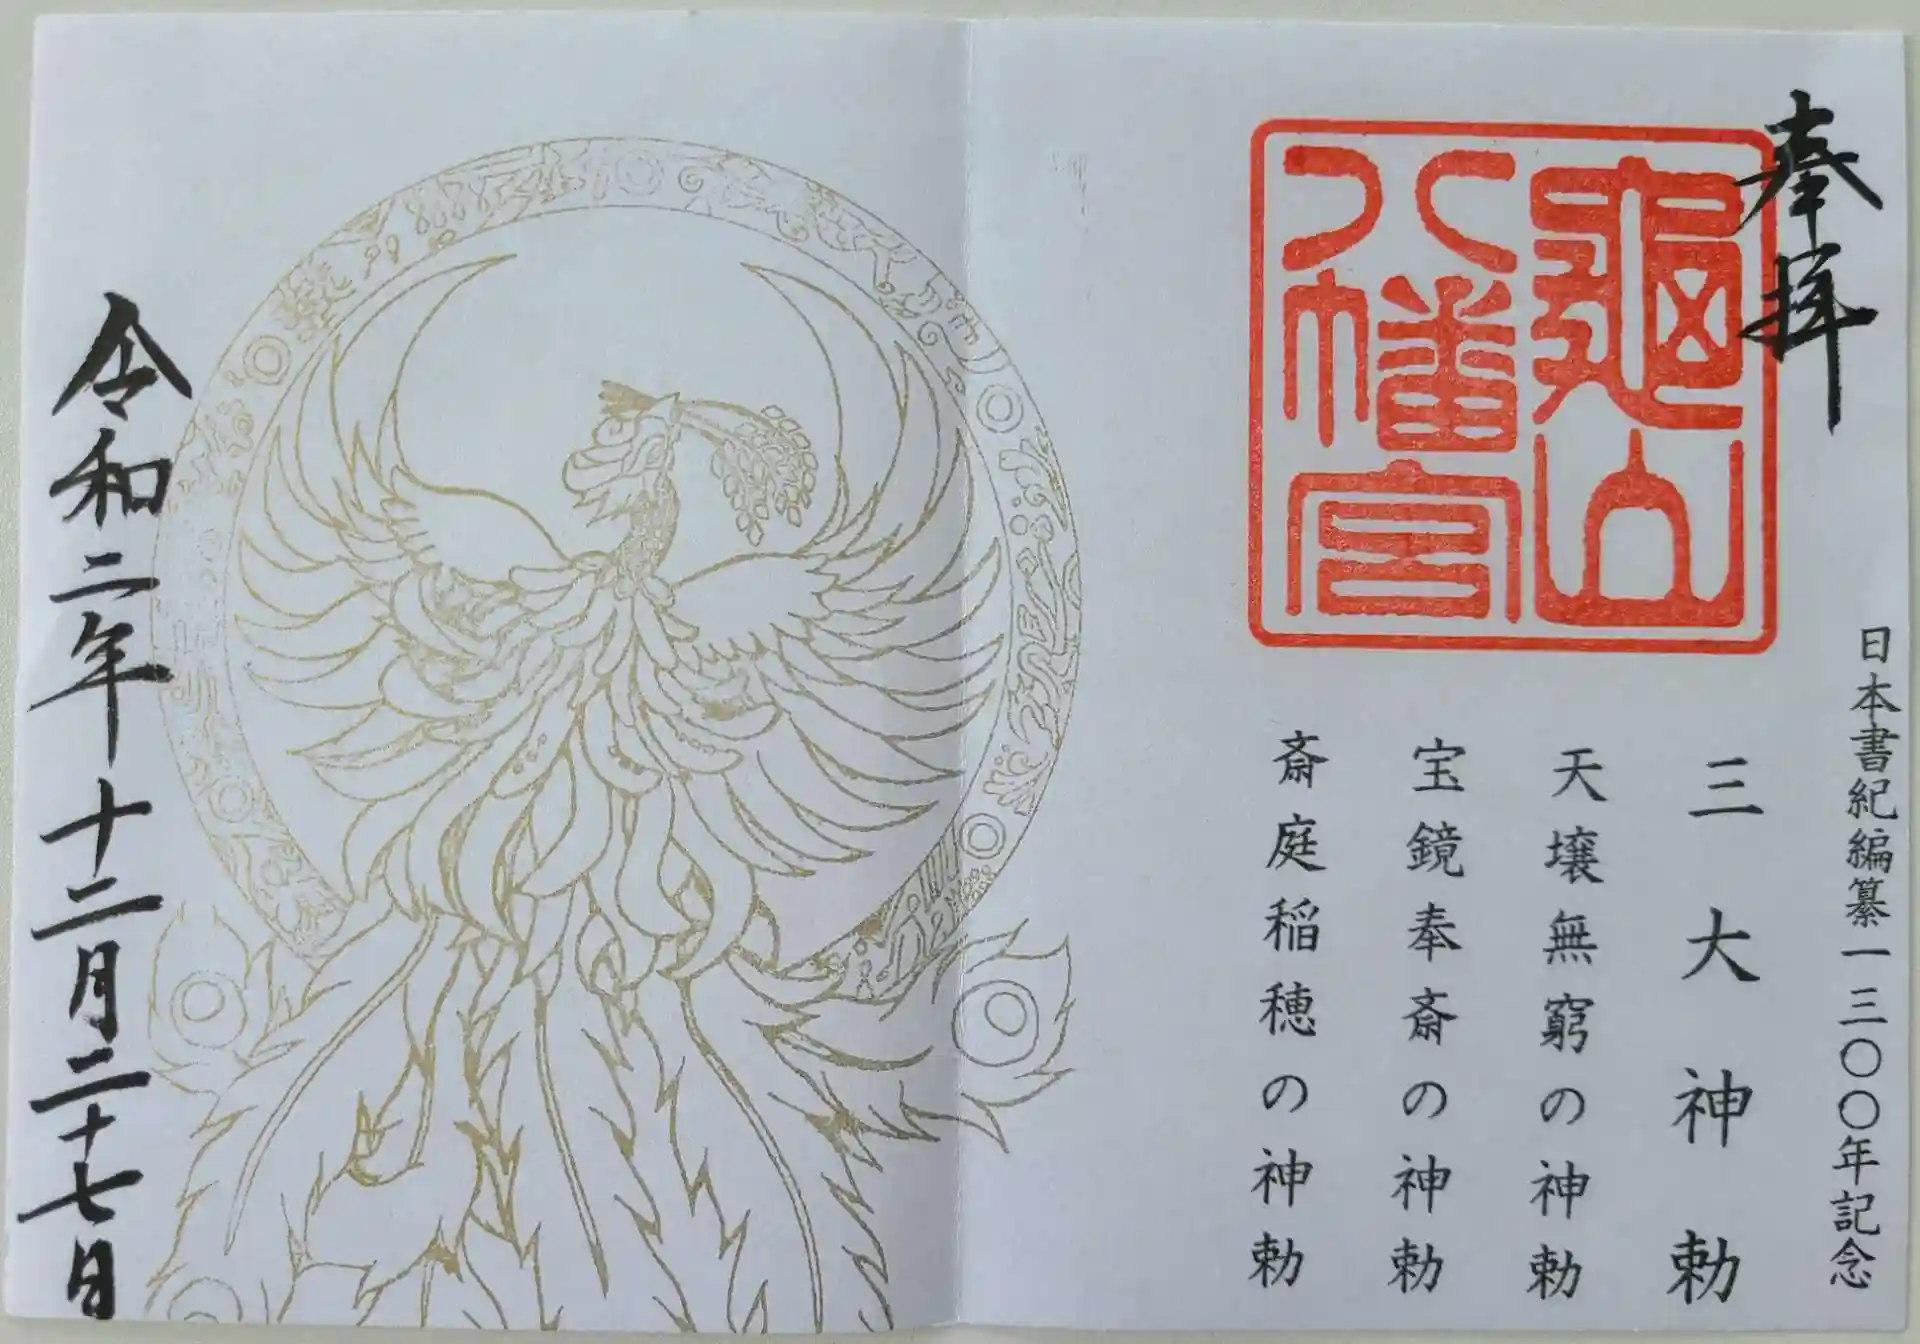 奉拝
日本書紀編纂一三〇〇年記念
亀山
八幡宮
三大神勅
天壌無窮の神勅
宝鏡奉斎の神勅
斎庭稲穂の神勅
令和二年十二月二十七日